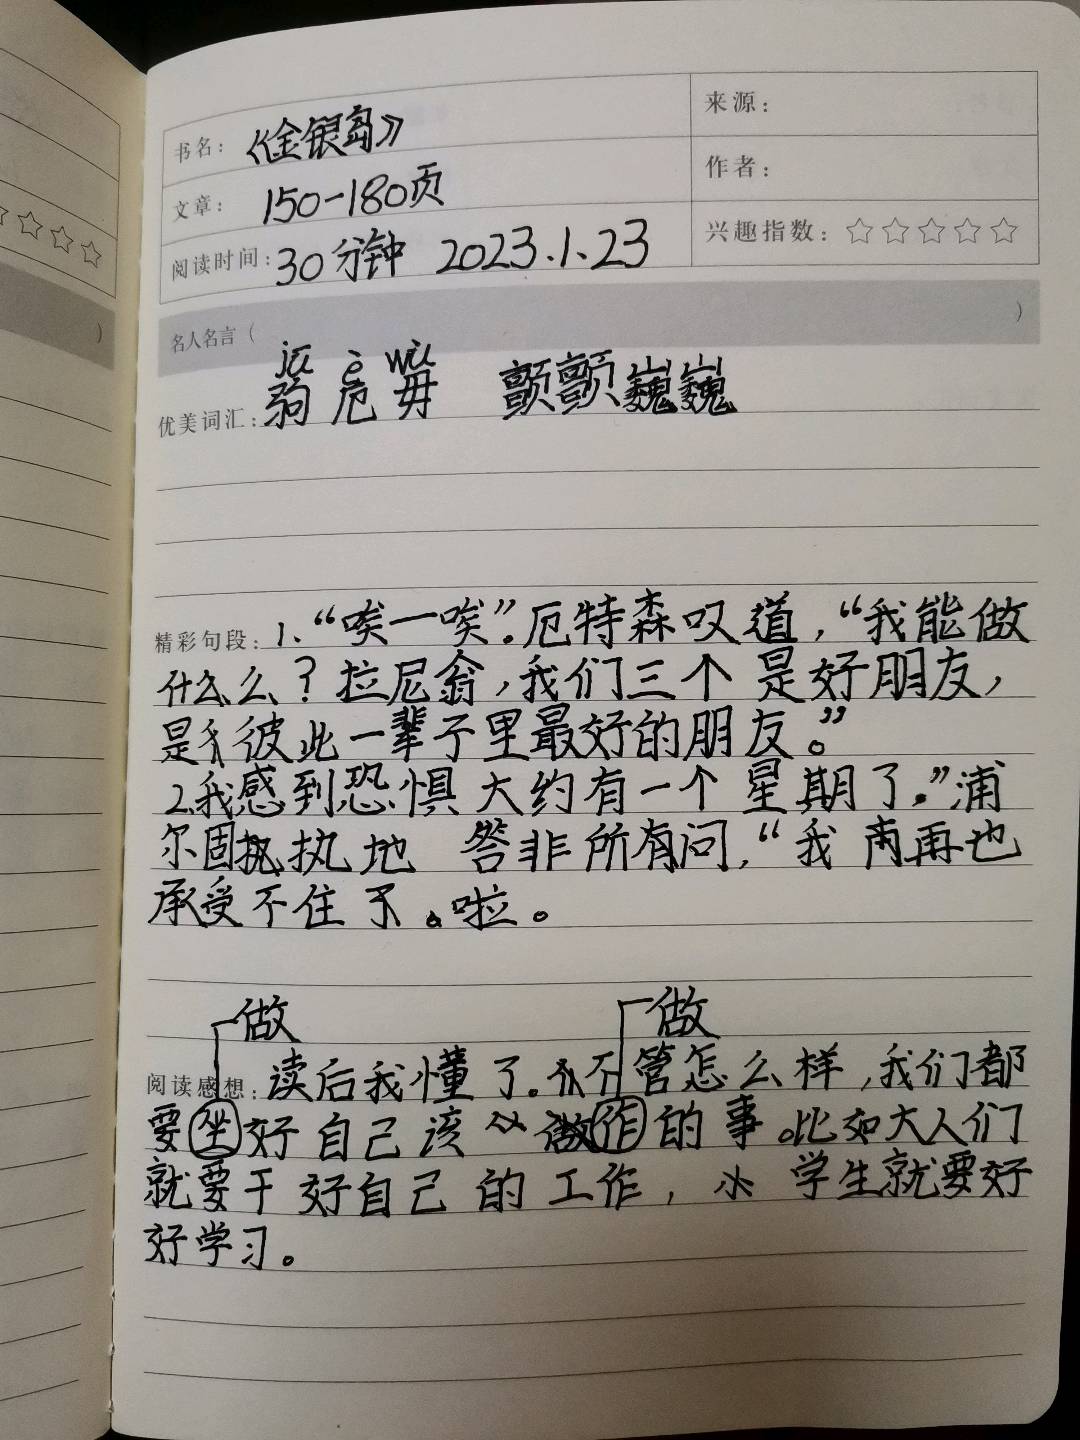 书名：《金银岛》
来源：
文章：150-180页
作者：
阅读时间：30分钟 2023.1.23
兴趣指数：☆☆☆☆☆
名人名言（ ）
jū è wú
优美词汇：驹 厄 毋 颤颤巍巍
精彩句段：1、“唉一唉”。厄特森叹道，“我能做
什么么？拉尼翁，我们三个是好朋友，
是彼此一辈子里最好的朋友。”
2、我感到恐惧大约有一个星期了。”浦
尔固执地 答非所有问，“我再也
承受不住了。啦。
做 做
阅读感想：读后我懂了。不管怎么样，我们都
要坐好自己该做作的事。比如大人们
就要干好自己的工作，小学生就要好
好学习。